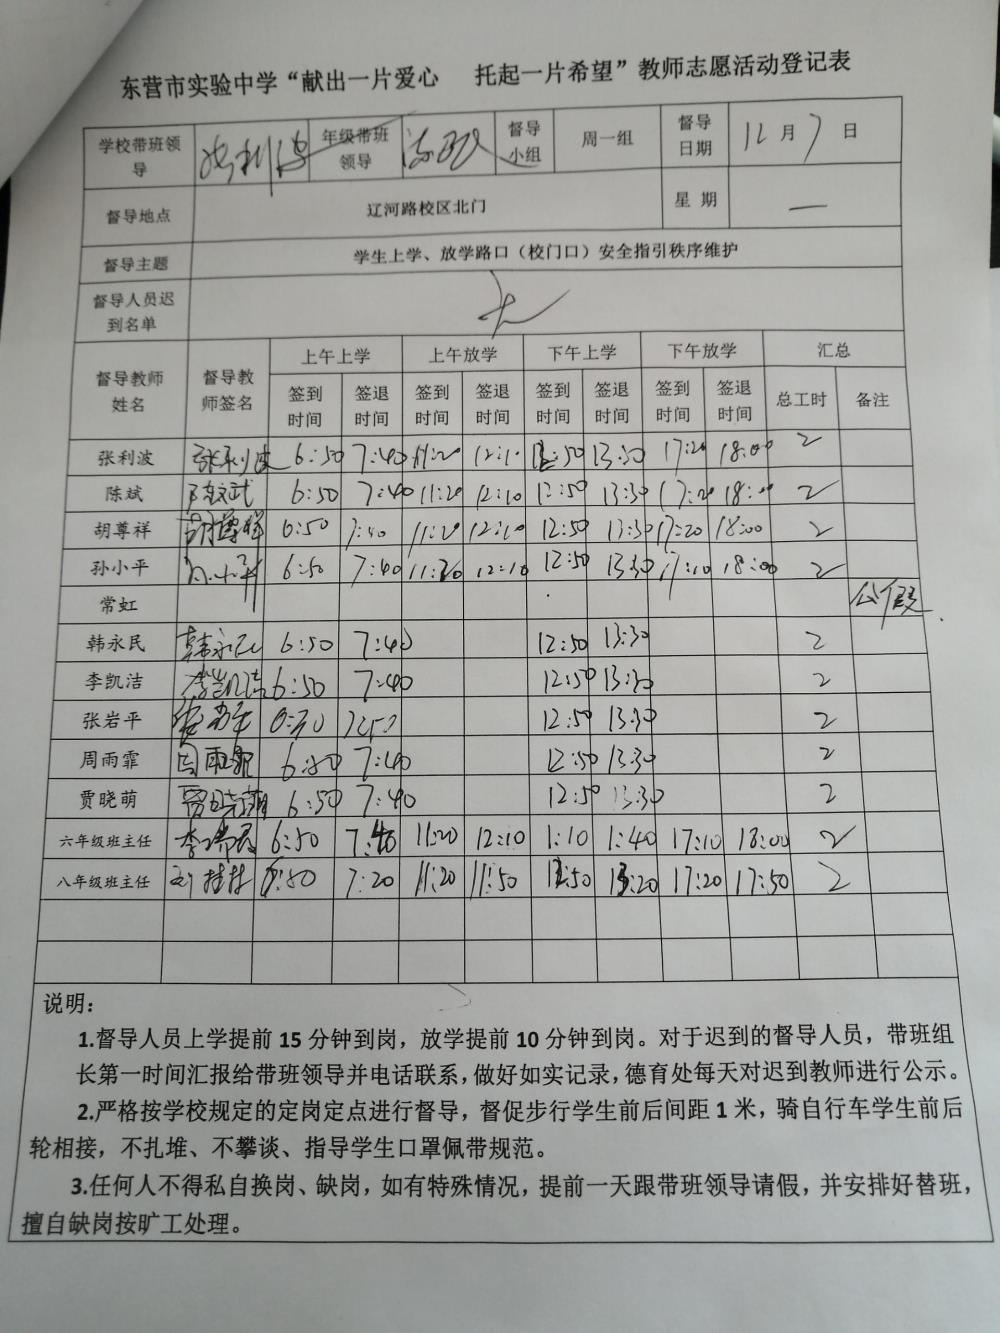 东营市实验中学“献出一片爱心 托起一片希望”教师志愿活动登记表
学校带班领导 张利波 年级带班领导 陈斌 督导小组 周一组 督导日期 12月7日
督导地点 辽河路校区北门 星期 一
督导主题 学生上学、放学路口（校门口）安全指引秩序维护
督导人员迟到名单 无
督导教师姓名 督导教师签名 上午上学 上午放学 下午上学 下午放学 汇总
签到时间 签退时间 签到时间 签退时间 签到时间 签退时间 签到时间 签退时间 总工时 备注
张利波 张利波 6:50 7:40 11:20 12:10 12:50 13:30 17:20 18:00 2
陈斌 陈斌 6:50 7:40 11:20 12:10 12:50 13:30 17:20 18:00 2
胡尊祥 胡尊祥 6:50 7:40 11:20 12:10 12:50 13:30 17:20 18:00 2
孙小平 孙小平 6:50 7:40 11:20 12:10 12:50 13:30 17:10 18:00 2
常虹 公假
韩永民 韩永民 6:50 7:40 12:50 13:30 2
李凯洁 李凯洁 6:50 7:40 12:50 13:30 2
张岩平 张岩平 12:50 13:30 2
周雨霏 周雨霏 6:50 7:40 12:50 13:30 2
贾晓萌 贾晓萌 6:50 7:40 12:50 13:30 2
六年级班主任 6:50 7:40 11:20 12:10 1:10 1:40 17:10 18:00 2
八年级班主任 6:50 7:20 11:20 11:50 12:50 13:20 17:20 17:50 2
说明：
1.督导人员上学提前 15 分钟到岗，放学提前 10 分钟到岗。对于迟到的督导人员，带班组
长第一时间汇报给带班领导并电话联系，做好如实记录，德育处每天对迟到教师进行公示。
2.严格按学校规定的定岗定点进行督导，督促步行学生前后间距 1 米，骑自行车学生前后
轮相接，不扎堆、不攀谈、指导学生口罩佩带规范。
3.任何人不得私自换岗、缺岗，如有特殊情况，提前一天跟带班领导请假，并安排好替班，
擅自缺岗按旷工处理。